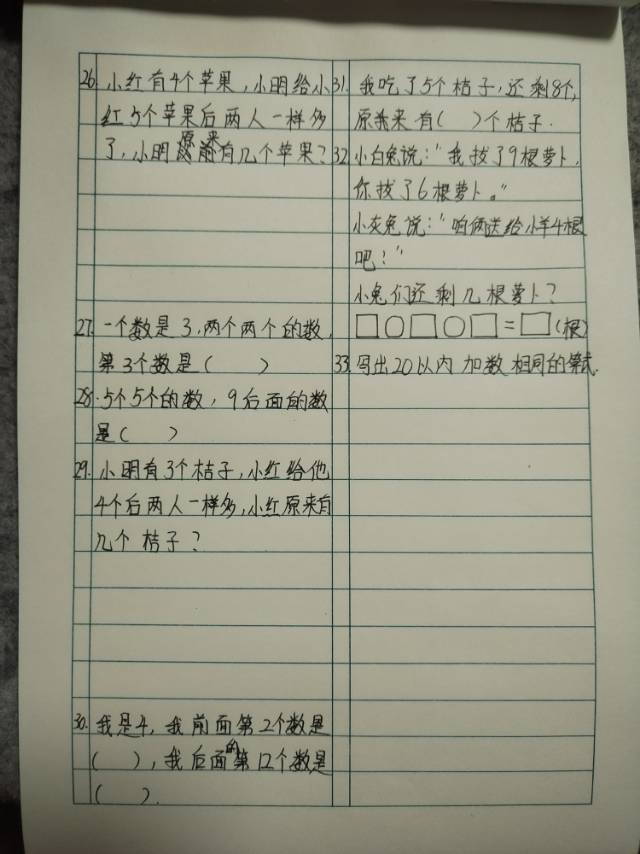 26. 小红有4个苹果,小明给小
红5个苹果后两人一样多
了,小明原来有几个苹果?
27. 一个数是3,两个两个的数,
第3个数是( )
28. 5个5个的数,9后面的数
是( )
29. 小明有3个桔子,小红给他
4个后两人一样多,小红原来有
几个桔子?
30. 我是4,我前面第2个数是
( ),我后面的第12个数是
( ).
31. 我吃了5个桔子,还剩8个,
原来有( )个桔子.
32. 小白兔说:“我拔了9根萝卜,
你拔了6根萝卜。”
小灰兔说:“咱俩送给小羊4根
吧!”
小兔们还剩几根萝卜?
□○□○□=□(根)
33. 写出20以内加数相同的算式.